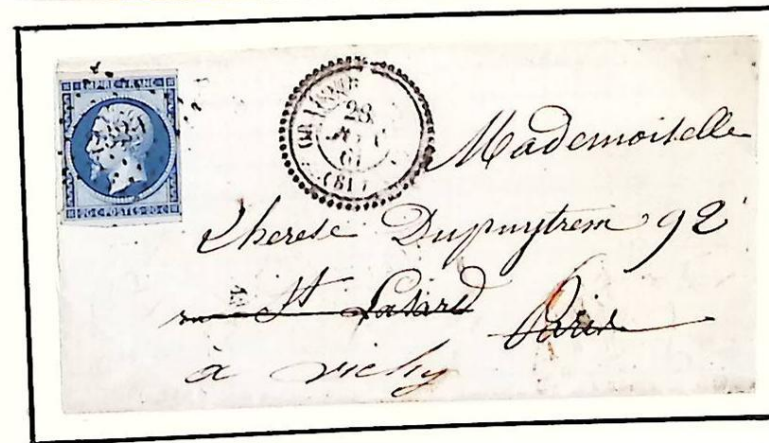 EMPIRE FRANC.
20C POSTES 20C
28
61
(81)
Mademoiselle
Therese Dupuytrem 92
rue St Lasard Paris
à vichy